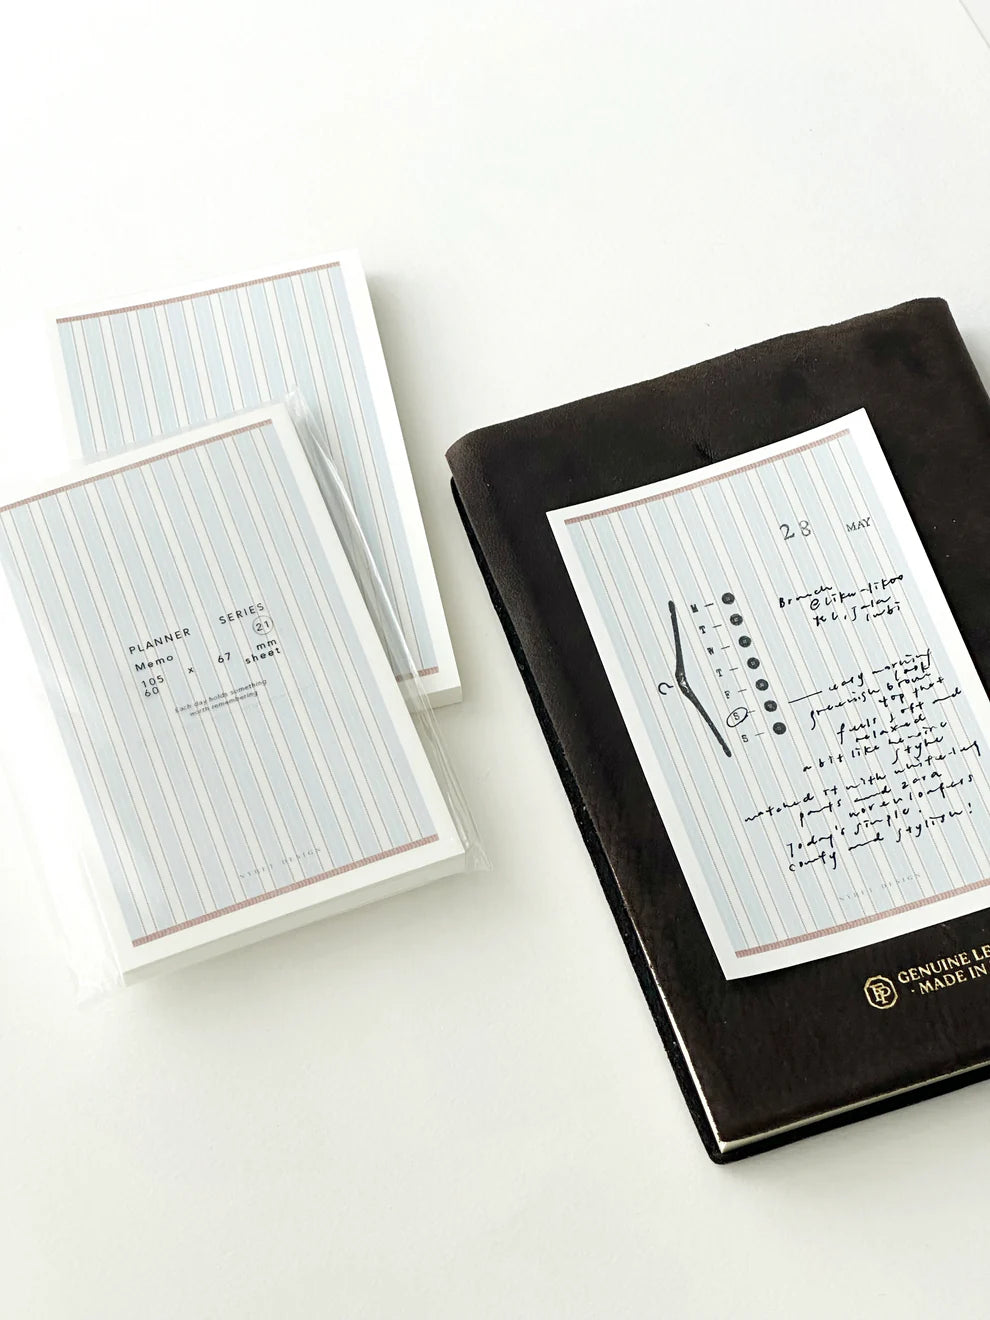 PLANNER SERIES
Memo 21
105 x 67 mm
60 sheet
Each day holds something
worth remembering
NYRET DESIGN
28 MAY
Brunch
M
T
W
T
F
S
S
early morning
look
greenish brown
top that
feels soft and
relaxed
a bit like
style
matched it with
pants and zara
woven loafers
Today's simple.
comfy and stylish!
NYRET DESIGN
EP
GENUINE LE
· MADE IN